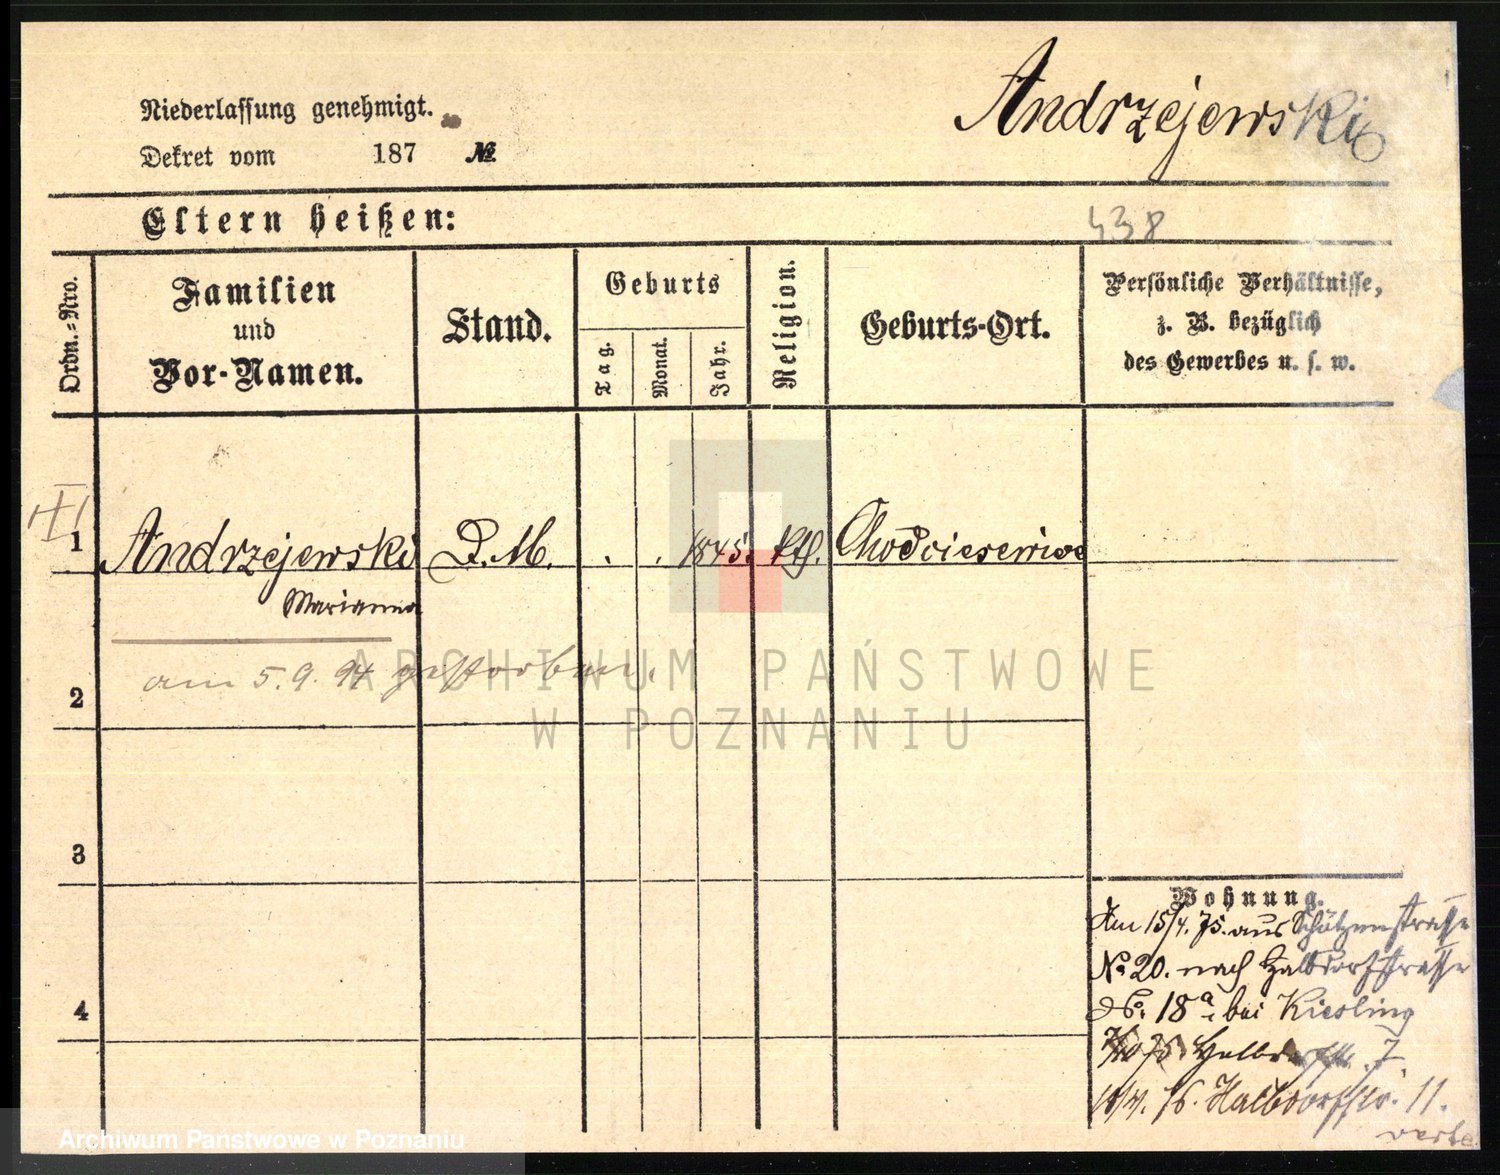 Andrzejewski
Niederlassung genehmigt.
Dekret vom 187 №
Eltern heißen:
438
Ordn.=Nro.
Familien
und
Vor-Namen.
Stand.
Geburts
Tag.
Monat.
Jahr.
Religion.
Geburts-Ort.
Persönliche Verhältnisse,
z. B. bezüglich
des Gewerbes u. s. w.
1 Andrzejewski D.M. . . 1845. kth.
Marianna
am 5.9.94 gestorben.
2
3
4
Wohnung.
Am 15/4. 75. aus Schützenstraße
No 20. nach Halbdorfstraße
No. 18 a. bei Kiesling
75 Halbdorfstr. 7.
76. Halbdorfstr. 11.
verte
ARCHIWUM PAŃSTWOWE
W POZNANIU
Archiwum Państwowe w Poznaniu